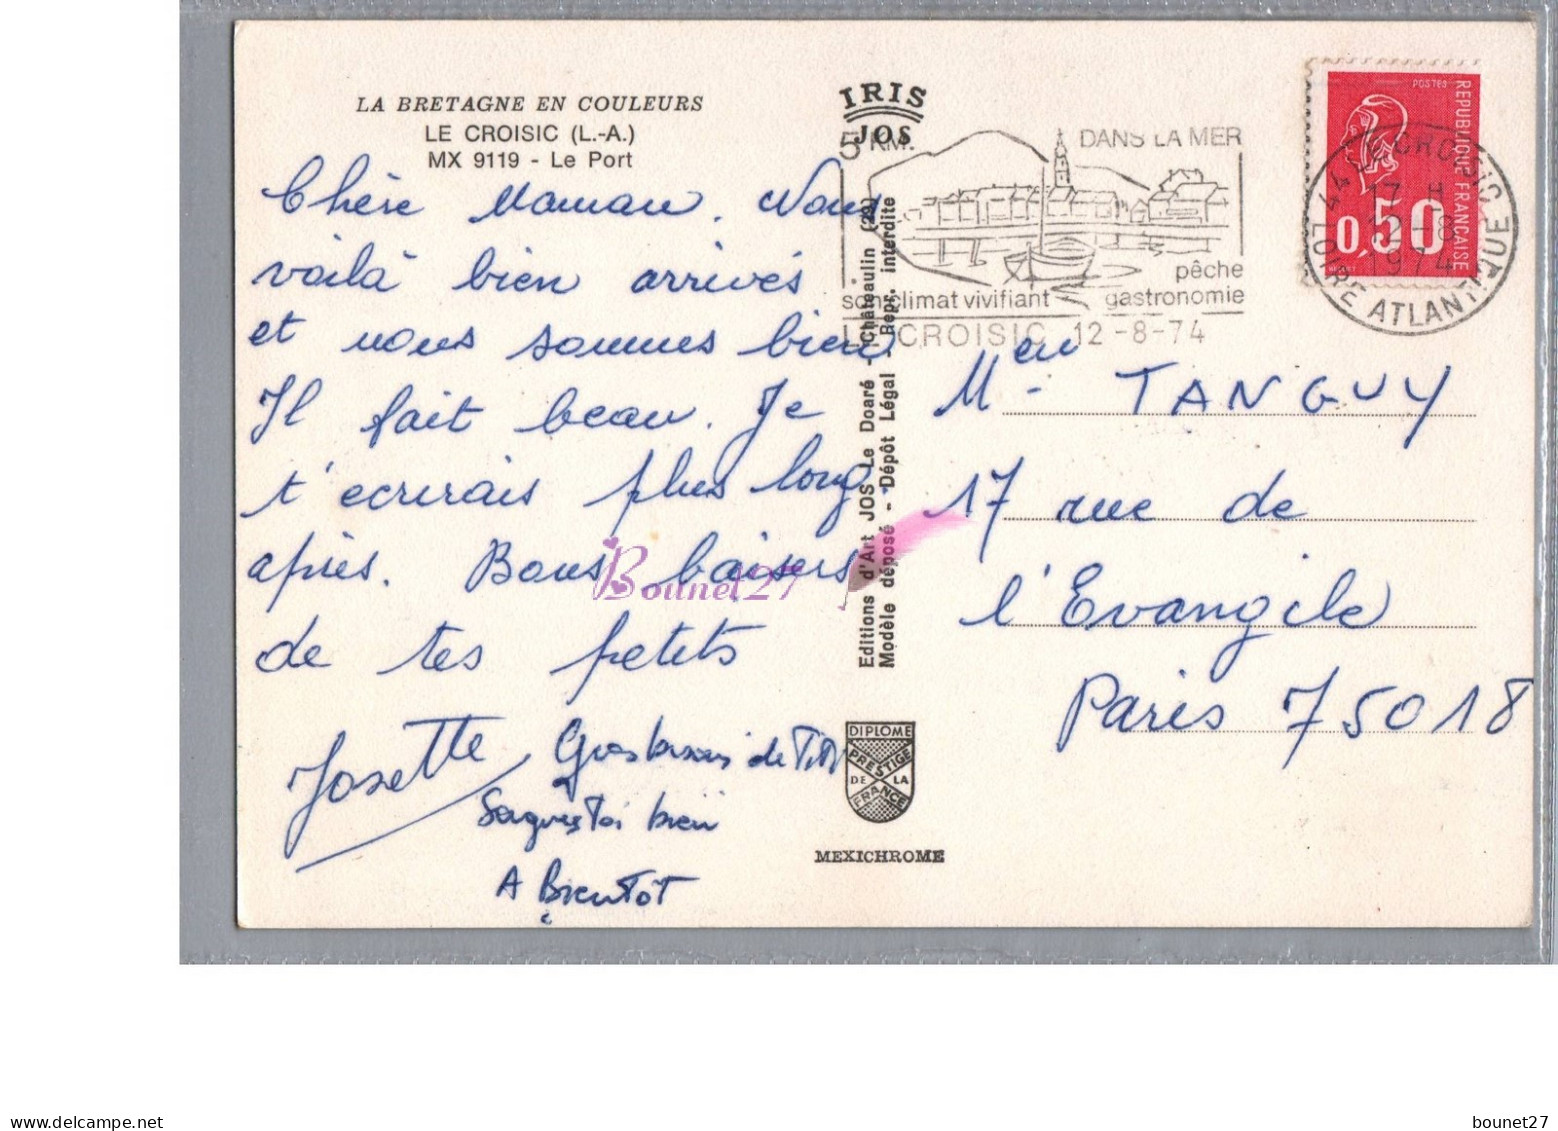 LA BRETAGNE EN COULEURS
LE CROISIC (L.-A.)
MX 9119 - Le Port
Chère Maman. Nous
voilà bien arrivés
et nous sommes bien
Il fait beau. Je
t'écrirais plus long
après. Bons baisers
de tes petits
Josette
Gros baisers de Titi
Soignes toi bien
A Bientôt
IRIS
JOS
Editions d'Art JOS Le Doaré - Châteaulin (29)
Modèle déposé - Dépôt Légal - Repr. interdite
DIPLOME
PRESTIGE
DE LA
FRANCE
MEXICHROME
5 KM. DANS LA MER
pêche
son climat vivifiant gastronomie
LE CROISIC 12-8-74
POSTES
REPUBLIQUE FRANCAISE
0,50
44 LE CROISIC
17 H
12-8
1974
LOIRE ATLANTIQUE
TANGUY
17 rue de
l'Evangile
Paris 75018
Bounet27
bounet27